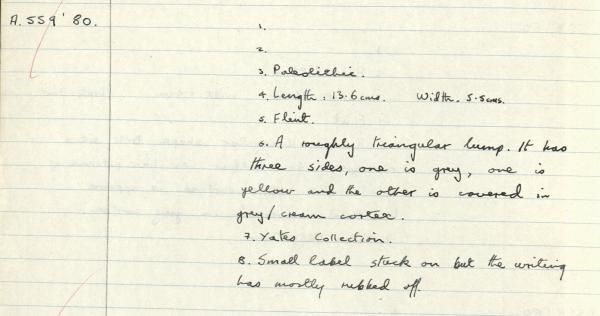 A.559'80.
1.
2.
3. Paleolithic.
4. Length: 13.6cms. Width. 5.5cms.
5. Flint.
6. A roughly triangular lump. It has
three sides, one is grey, one is
yellow and the other is covered in
grey/cream cortex.
7. Yates Collection.
8. Small label stuck on but the writing
has mostly rubbed off.